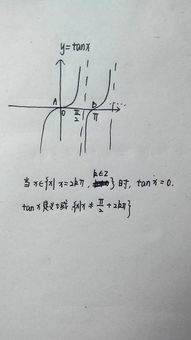 y=tanx
A B
0 π/2 π
当 x∈{x| x=2kπ, k∈Z} 时, tan x=0.
tan x 定义域 {x|x≠ π/2 +2kπ}